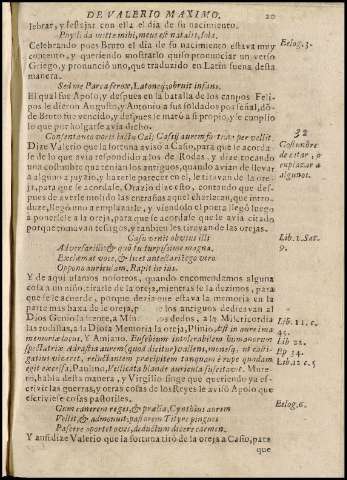 DE VALERIO MAXIMO. 20
lebrar, y festejar con ella el dia de su nacimiento.
Phyli da mitte mihi, meus est natalis, Iola.
Celebrando pues Bruto el dia de su nacimiento estava muy
contento, y queriendo mostrarlo quiso pronunciar un verso
Griego, y pronunciò uno, que traduzido en Latin suena desta
manera.
Sed me Parca ferox, Latoneijq; obruit infans.
El qual fue Apolo, y despues en la batalla de los campos Feli-
pos le dieron Augusto, y Antonio a sus soldados por señal, dõ-
de Bruto fue vencido, y despues le matò a si propio, y se cumplio
lo que por holgarse avia dicho.
Consentanea vocis iactu Caij Cassij aurem fortuna pervellit.
Dize Valerio que la fortuna avisò a Casio, para que se acorda-
se de lo que avia respondido a los de Rodas, y dize tocando
una costumbre que tenian los antiguos, quando avian de llevar
a alguno a juyzio, y hazerle parecer en el, le tiravan de la ore-
ja, para que se acordase. Orazio dize esto, contando que des-
pues de averle molido las entrañas aquel charlatan, que intro-
duze, llegò uno a emplazarle, y viendolo el poeta llegò luego
a ponerle a la oreja, para que se acordase que le avia citado
porque tomavan testigos, y tambien les tiravan de las orejas.
Casu venit obvius illi
Adversarius: & quò tu turpissime magna.
Exclamat voce, & licet antestari ego vero
Oppono auriculam, Rapit in ius.
Y de aqui usamos nosotros, quando encomendamos alguna
cosa a un niño, tirarle de la oreja, mientras se la dezimos, para
que se le acuerde, porque dezia que estava la memoria en la
parte mas baxa de le oreja, p los antiguos dedicavan al
Dios Genio la frente, a Min los dedos, a la Misericordia
las rodillas, a la Diosa Memoria la oreja, Plinio, Est in aure ima
memoriæ locus. Y Amiano. Eusebium intolerabilem humanorum
spectatrix Adrastia aurem (quod dicitur) vellens, monensq; ut casti-
gatius viveret, reluctantem præcipitem tamquam è rupe quadam
egit excelsa, Paulino, Vellicata blande auricula suscitavit. Mure-
to, habla desta manera, y Virgilio finge que queriendo ya es-
crivir las guerras, y otras cosas de los Reyes le avisò Apolo que
escriviese cosas pastoriles.
Cum canerem reges, & prælia, Cynthius aurem
Vellit, & admonuit: pastorem Tityre pingues
Pascere oportet oves, deductum dicere carmen.
Y ansi dize Valerio que la fortuna tirò de la oreja a Casio, para
que
Eelog. 3.
32
Costumbre
de citar, o
emplazar a
algunos.
Lib. 1. Sat.
9.
Lib. 11. c.
45.
Lib. 22.
Ep 34.
Lib 12 c. 5
Eelog. 6.